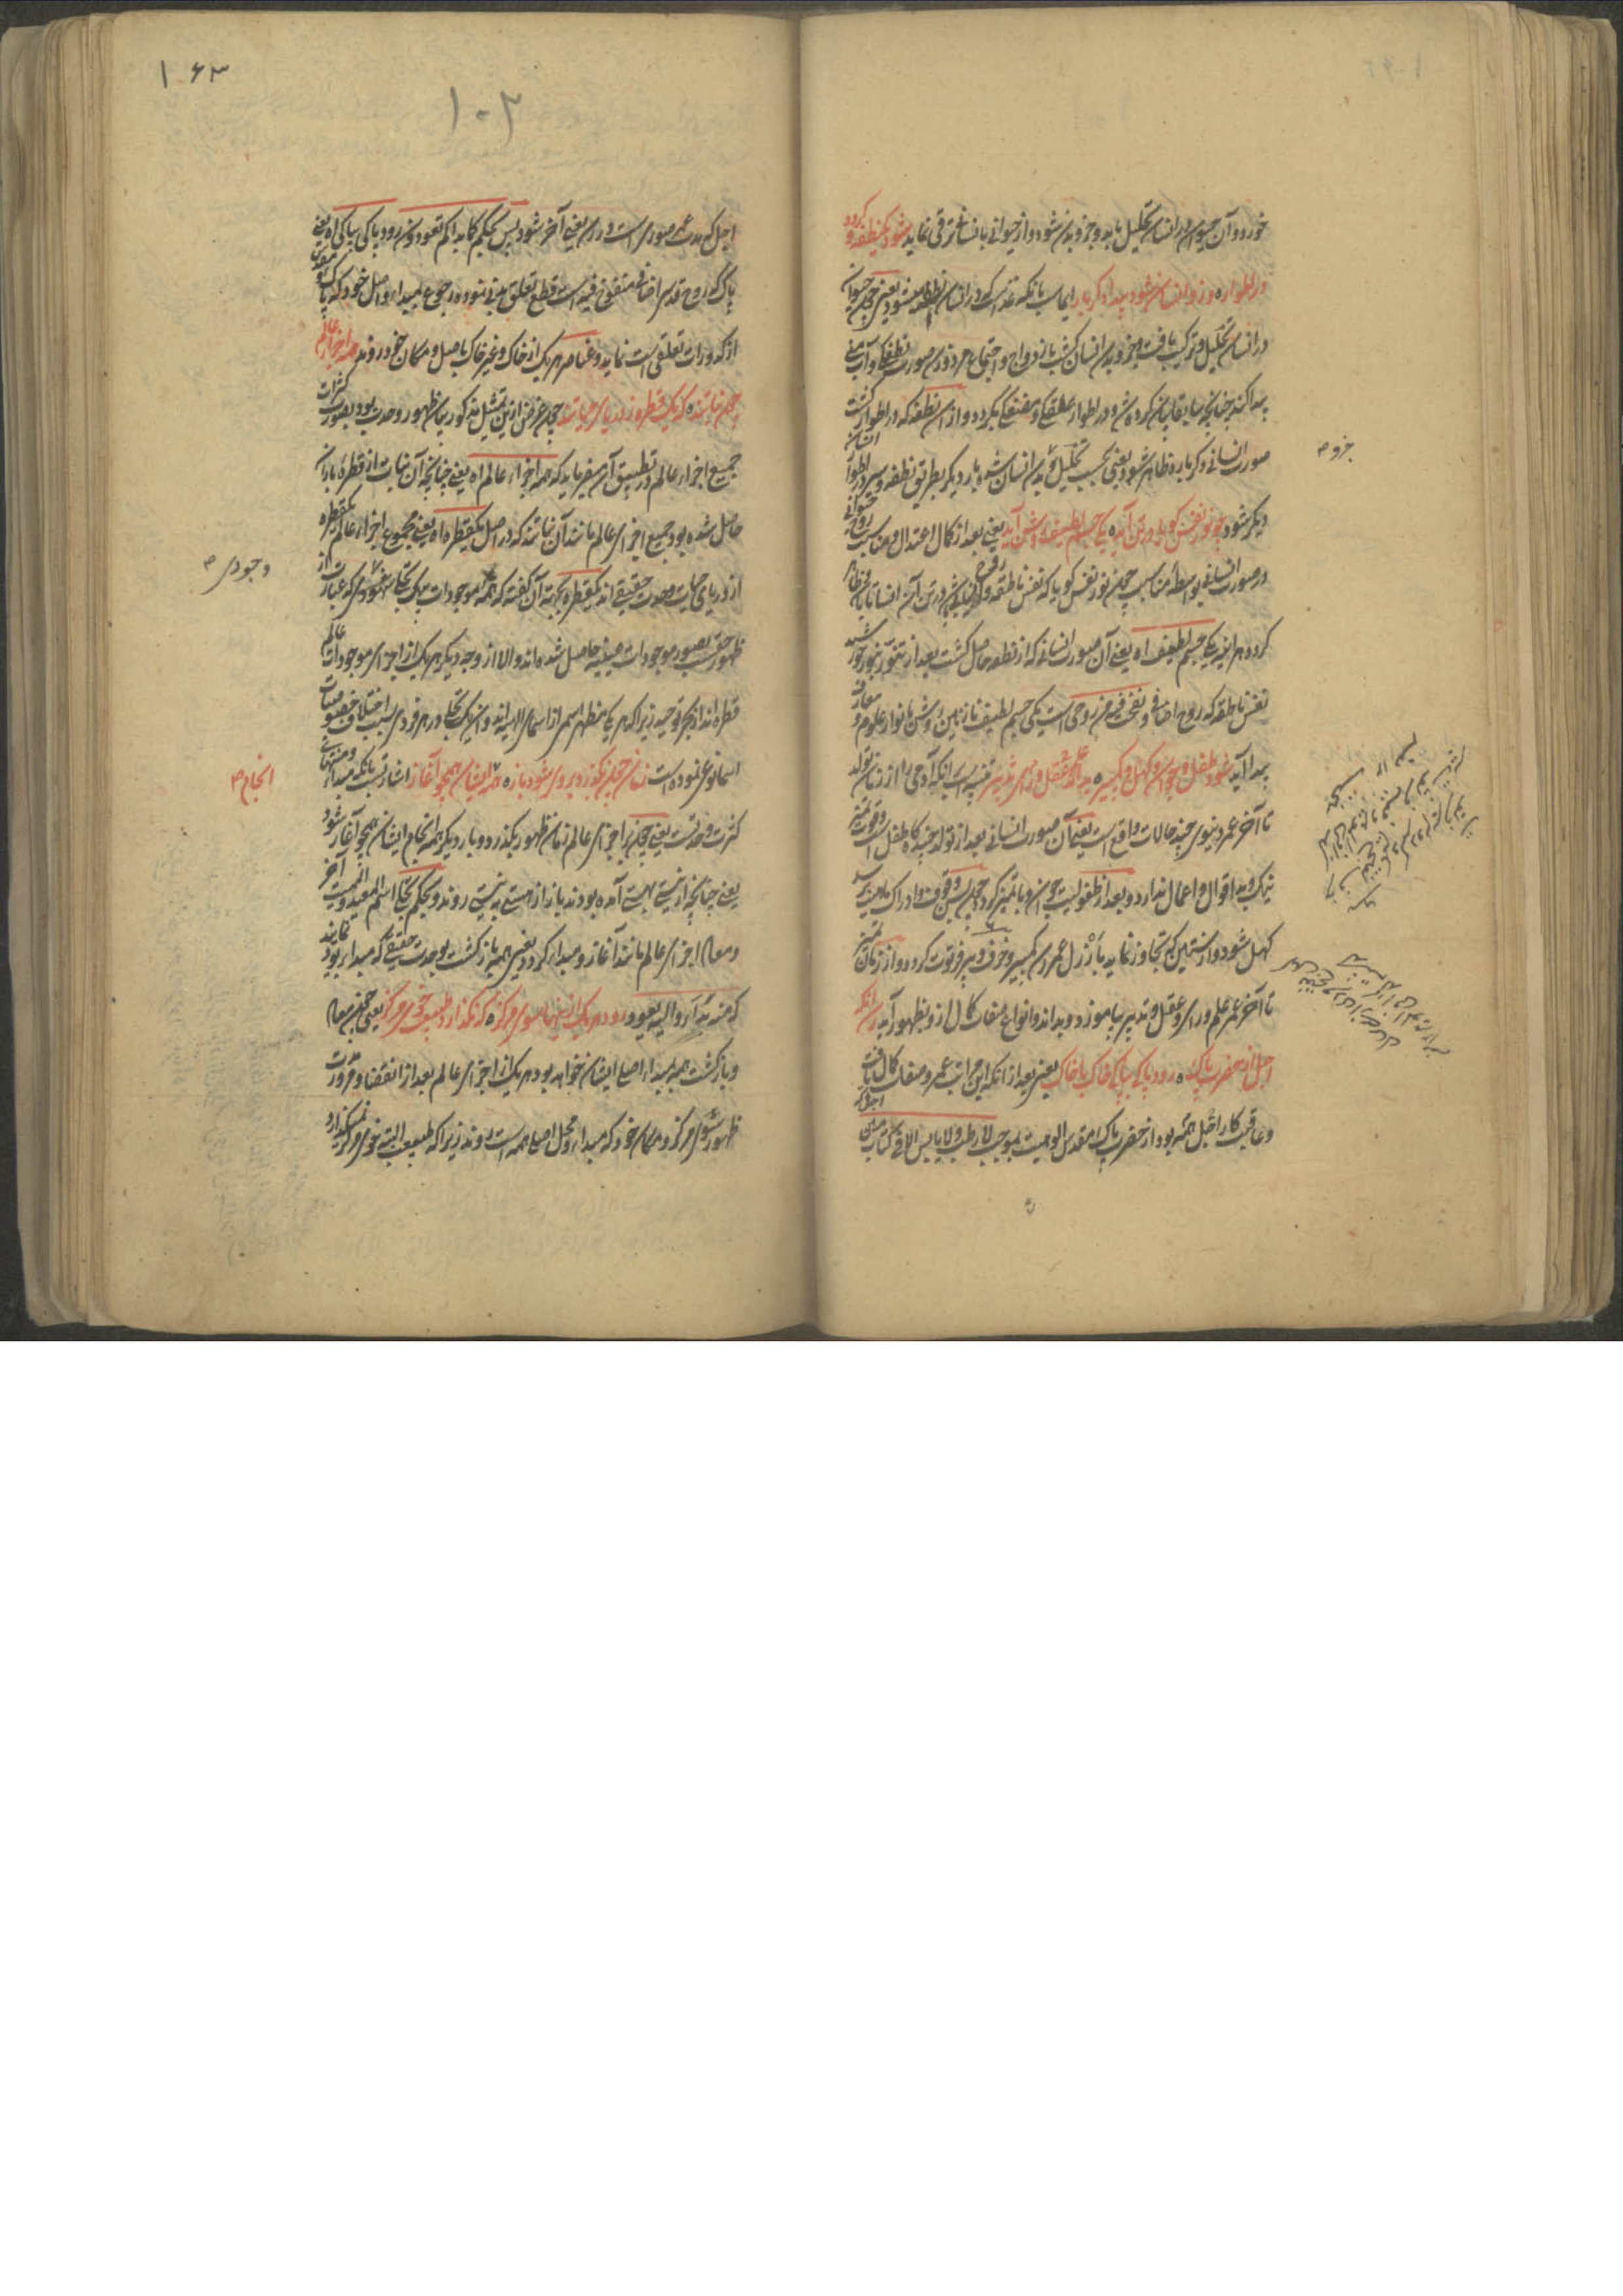 خورد و آن حیوان در انسان تحلیل یابد و جزو بدن شود و از حیوانی بانسانی ترقی نماید شود یک نطفه و گردد
در اطوار ٥ وزو انسان شود پیدا دگر بار ایماست بانکه غذا که در انسان نطفه میشود یعنی چون حیوان
در انسان تحلیل و ترکیب یافت و جزو بدن انسان گشت بازدواج و اجتماع مرد و زن صورت نطفگی و آب منی
پیدا کند چنانچه سابقا بیان کرده شد و در اطوار علقگی و مضغگی بگردد و از آن نطفه که در اطوار گشت
صورت انسانی دگرباره ظاهر شود یعنی بحسب تحلیل بدن انسان شده بار دیگر بطریق نطفه و سیر در اطوار انسان
دیگر شود چو نور نفس گویا در تن آید ٥ یکی جسم لطیف و روشن آید یعنی بعد از کمال اعتدال و مناسبت روح حیوانی
در صورت انسانی بواسطه مناسبت چون نور نفس گویا که نفس ناطقه و روح انسانیست در تن آن انسان تابان و ظاهر
گردد هر آینه یکی جسم لطیف اه یعنی آن صورت انسانی که از نطفه حاصل گشت بعد از تنور بنور خورشید
نفس ناطقه که روح اضافی و نفخت فیه من روحی است یکی جسم لطیف نازنین و روشن بانوار علوم و معارف
پیدا آید شود طفل و جوان و کهل و کمپیر ٥ بداند علم و عقل و رای و تدبیر تنبیه است بانکه آدمی را از زمان تولد
تا آخر عمر دنیوی چند حالات واقع است یعنی آن صورت انسانی بعد از تولد چندگاه طفل است و قوت تمیز
نیک و بد اقوال و اعمال ندارد و بعد از طفولیت جوان و با تمیز گردد و چون بسن وقوف و ادراک باربعین رسد
کهل شود و از سنین که تجاوز نماید بارذل عمر رسد کمپیر و خرف و پیر فرتوت گردد و از زمان تمیز
تا آخر عمر علم و رای و عقل و تدبیر بیاموزد و بداند و انواع صفات کمال ازو بظهور آید رسد آنگه
اجل از حضرت پاک ٥ رود پاکی بپاکی خاک با خاک یعنی بعد از آنکه این مراتب عمر و صفات کمال یافت
و عاقبت کار اجل همه بود از حضرت پاک مقدس الوهیت بموجب لا رطب و لا یابس الا فی کتاب مبین
جزو ص
اجل که مدت عمر صوری است در رسد یعنی آخر شود پس بحکم کما بدأکم تعودون رود پاکی بپاکی اه یعنی
پاک که روح قدسی اضافی منفوخ فیه است قطع تعلق بدنی نموده رجوع بمبداء و اصل خود که پاک و مقدس
از کدورات تعلقی است نماید و عناصر هر یک از خاک و غیر خاک باصل و مکان خود روند همه اجزاء عالم
چون نباتند ٥ که یک قطره ز دریای حیاتند چون غرض ازین تمثیل مذکور بیان ظهور وحدت بود بصورت کثرات
جمیع اجزاء عالم در تطبیق آن میفرماید که همه اجزاء عالم اه یعنی چنانچه آن نبات از قطره باران
حاصل شده بود جمیع اجزای عالم مانند آن نباتند که در اصل یکقطره اه یعنی مجموع اجزاء عالم یکقطره
از دریای حیات وحدت حقیقی‌اند یکقطره بجهت آن گفته که همه موجودات بیک تجلی شهودی که عبارت از
ظهور حق بصور موجودات متعینه حاصل شده‌اند و الا از وجه دیگر هر یک از اجزای موجودات عالم
قطره‌اند از بحر توحید زیرا که هر یکی مظهر اسمی از اسمای الهیه‌اند و آن یک تجلی در هر فردی بسبب اختلاف خصوصیات
اسما نوعی نموده است زمان چون بگذرد بروی شود باز ٥ همه انجام ایشان همچو آغاز اشارتست بانکه مبداء و منتهای
کثرت وحدتست یعنی چون بر اجزای عالم زمان ظهور بگذرد و بار دیگر همه انجام ایشان همچو آغاز شود
یعنی چنانچه از نیستی بهست آمده بودند باز از هستی به نیستی روند و بحکم تجلی اسم المعید و الممیت آخر
و معاد اجزای عالم مانند آغاز و مبداء گردد یعنی همه بازگشت بوحدت حقیقی که مبداء بود نمایند
که منه بدأ و الیه یعود رود هر یک ازیشان سوی مرکز ٥ که نگذارد طبیعت خوی مرکز یعنی چون معاد
و بازگشت همه بمبداء اصلی ایشان خواهد بود هر یک از اجزای عالم بعد از انقضاء ضرورت
ظهور سوی مرکز و مکان خود که مبداء و محل اصلی همه است روند زیرا که طبیعت البته خوی مرکز نمیگذارد
وجودی ص
انجام ص
۱۶۳
۱۰۲